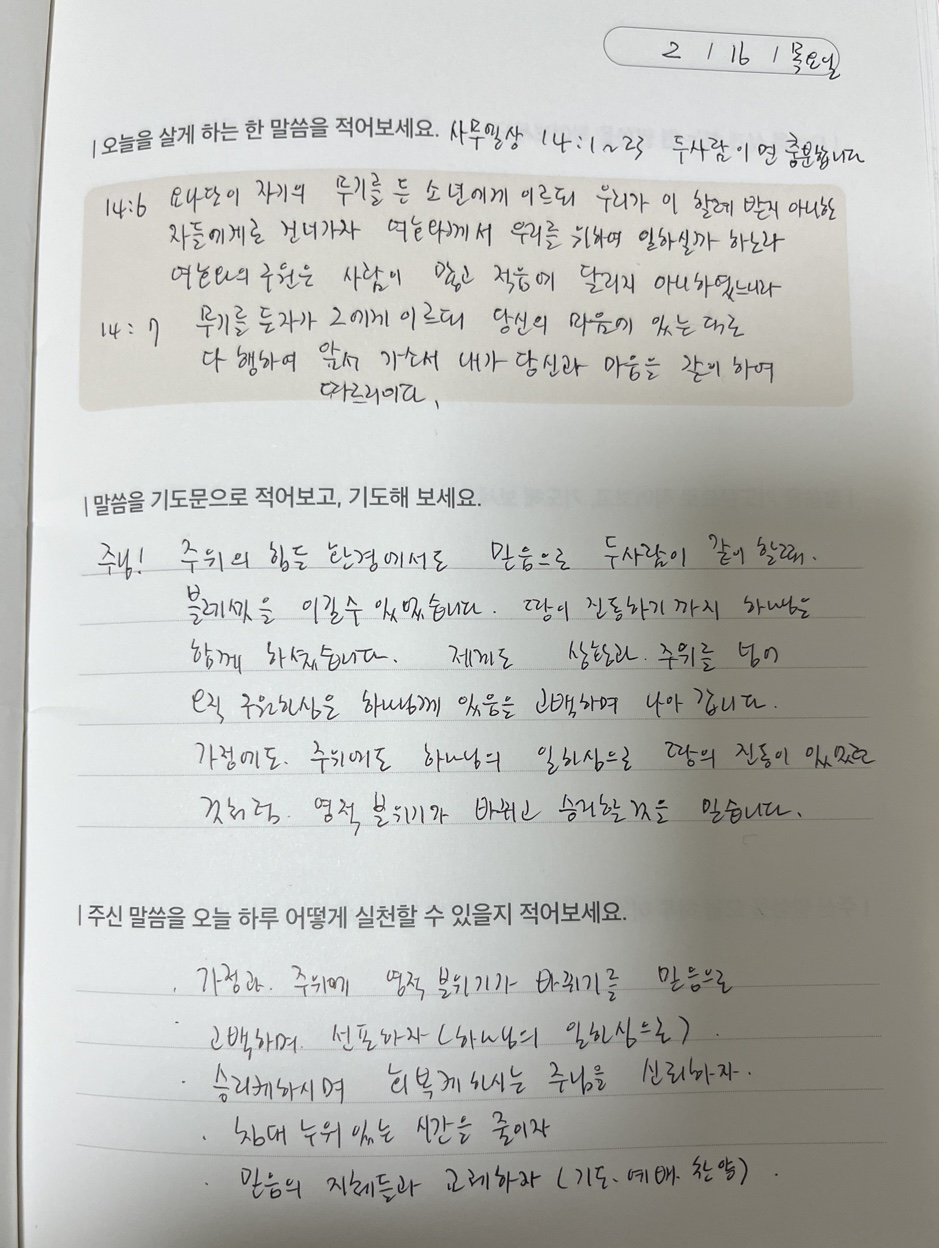 2 / 16 / 목요일
오늘을 살게 하는 한 말씀을 적어보세요. 사무엘상 14:1~23 두사람이면 충분합니다
14:6 요나단이 자기의 무기를 든 소년에게 이르되 우리가 이 할례 받지 아니한
자들에게로 건너가자 여호와께서 우리를 위하여 일하실까 하노라
여호와의 구원은 사람이 많고 적음에 달리지 아니하였느니라
14:7 무기를 든자가 그에게 이르되 당신의 마음에 있는 대로
다 행하여 앞서 가소서 내가 당신과 마음을 같이 하여
따르리이다.
말씀을 기도문으로 적어보고, 기도해 보세요.
주님! 주위의 힘든 환경에서도 믿음으로 두사람이 같이 할때.
블레셋을 이길수 있었습니다. 땅이 진동하기 까지 하나님은
함께 하셨습니다. 제게도 상황과 주위를 넘어
오직 구원하심은 하나님께 있음을 고백하며 나아 갑니다.
가정에도. 주위에도 하나님의 일하심으로 땅의 진동이 있었던
것처럼. 영적 분위기가 바뀌고 승리할것을 믿습니다.
주신 말씀을 오늘 하루 어떻게 실천할 수 있을지 적어보세요.
· 가정과 주위에 영적 분위기가 바뀌기를 믿음으로
· 고백하며 선포하자 (하나님의 일하심으로).
· 승리케하시며 회복케하시는 주님을 신뢰하자.
· 침대 누워 있는 시간을 줄이자
· 믿음의 지체들과 교제하자 (기도. 예배. 찬양).